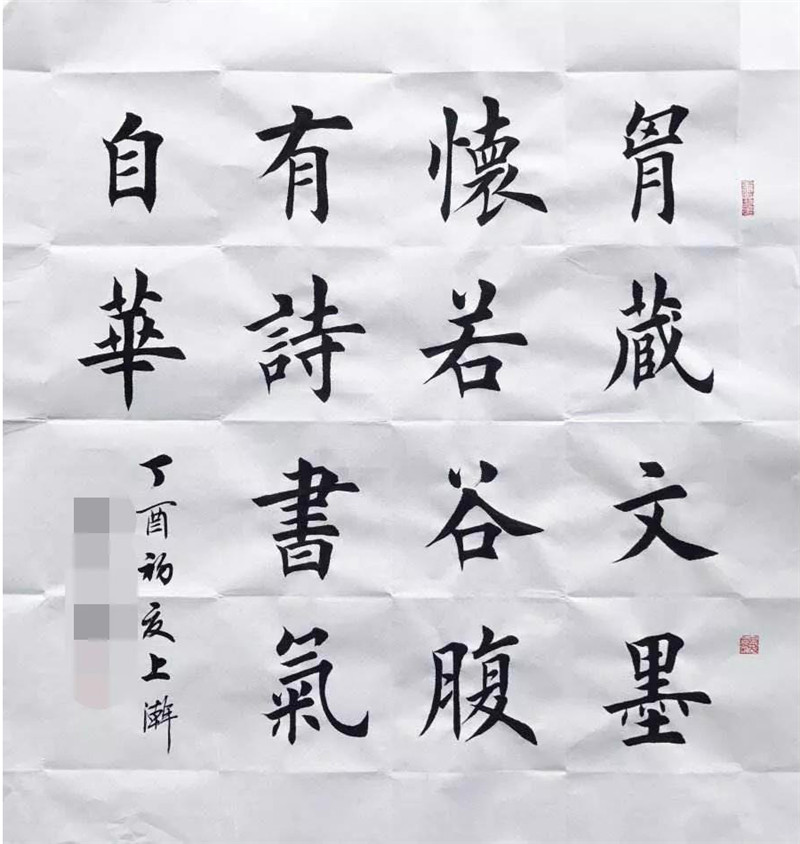 胷蔵文墨
懷若谷腹
有詩書氣
自華
丁酉初夏上澣